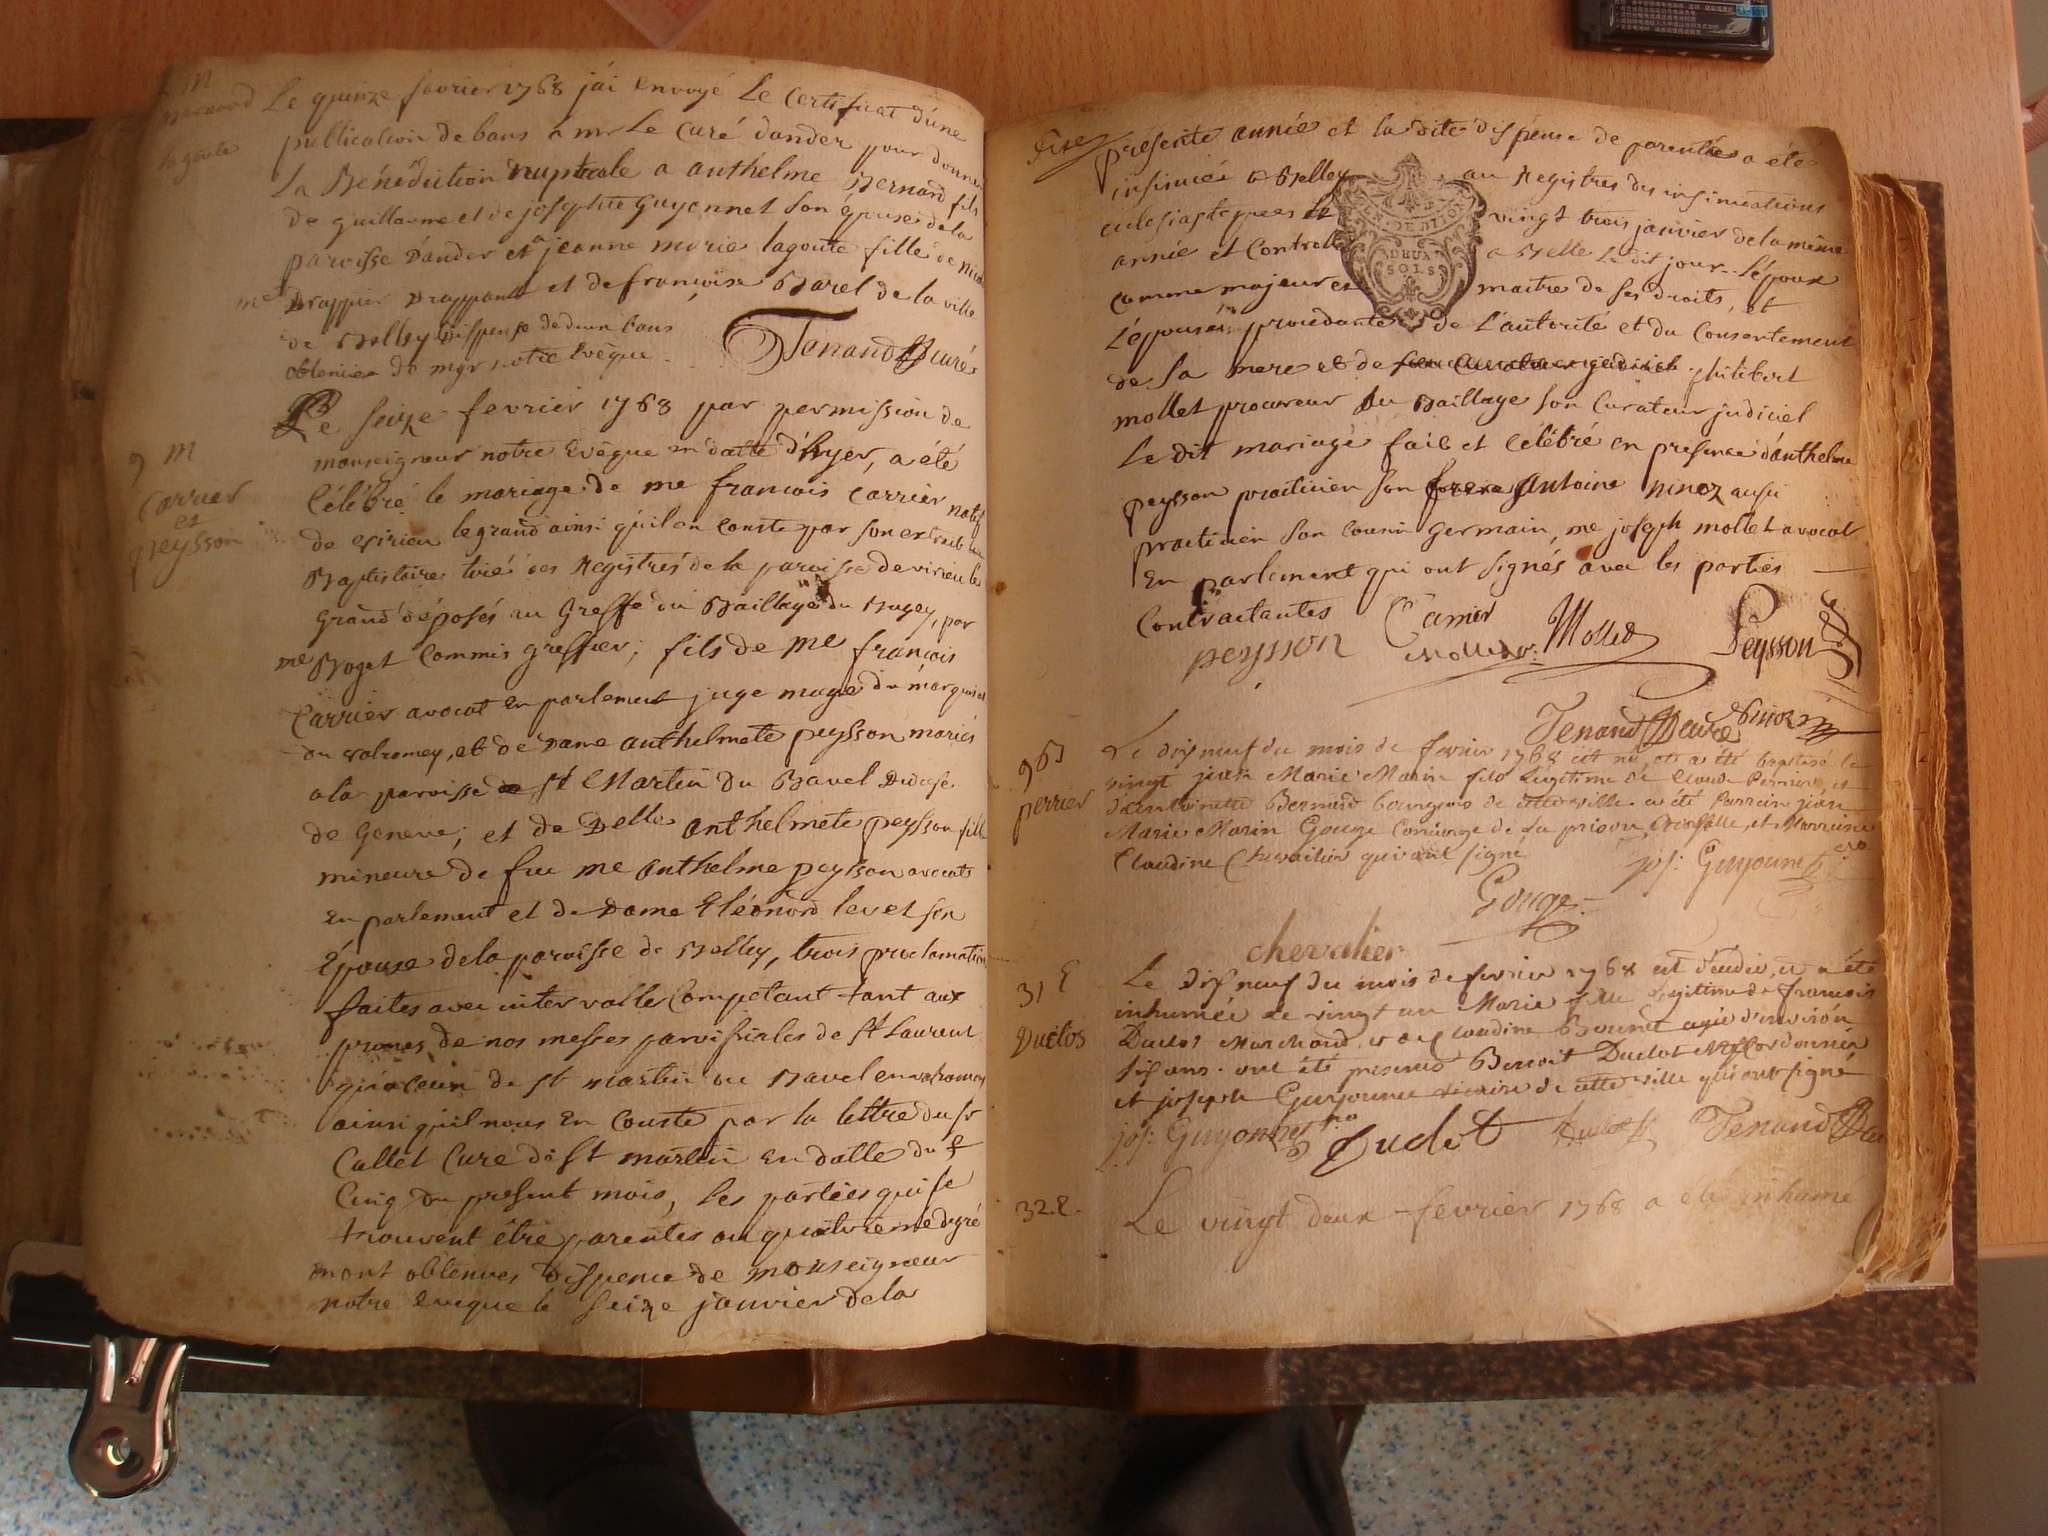 m
Bernard
lagoute
Le quinze fevrier 1768 j'ai envoyé Le Certificat d'une
publication de bans a mr Le Curé d'ander pour donner
La Bénédiction nuptiale a anthelme Bernard fils
de guillaume et de josephte Guyonnet son épouse de la
paroisse d'ander et a jeanne marie lagoute fille de
me Drappier Drappant et de françoise Barel de la ville
de Belley Dispense de deux bans
obtenue de mgr notre Evêque.
Tenand Curé
9 M
Carrier
et
peysson
Le seize fevrier 1768 par permission de
monseigneur notre Evêque en datte d'hyer, a été
Célébré le mariage de me francois Carrier
de virieu le grand ainsi qu'il en conste par son extrait
Baptistaire tiré des Registres de la paroisse de virieu le
grand déposés au Greffe du Baillage du Bugey, par
me Boget Commis greffier; fils de me françois
Carrier avocat en parlement juge mage du marquisat
du valromey, et de Dame anthelmete peysson mariés
a la paroisse de St Martin du Bavel Diocese
de Geneve; et de Delle anthelmete peysson fille
mineure de feu me anthelme peysson avocat
en parlement et de Dame Eléonord levet son
Épouse de la paroisse de Belley, trois proclamations
faites avec intervalle Compétant tant aux
prones de nos messes parroissiales de St Laurent
qu'a celui de St martin de Bavel en valromey
ainsi qu'il nous En Conste par la lettre du Sr
Callet Curé de St martin En datte du
Cinq du présent mois, les parties qui se
trouvent être parentes au quatrieme degré
m'ont obtenues Dispence de monseigneur
notre eveque le seize janvier de la
présente année et la dite dispense de parentée a été
insinuée a Belley au Registres des insinuations
eclesiastiques le vingt trois janvier de la même
année et Controllé a Belle le dit jour. L'époux
comme majeur et maitre de ses droits, et
L'épouse procédante de L'autorité et du Consentement
de sa mere et de philibert
mollet procureur au Baillage son Curateur judiciel
Le dit mariage fait et Célébré en presence d'anthelme
peysson praticien son frere antoine ninoz aussi
praticien son cousin germain, me joseph mollet avocat
En parlement qui ont signés avec les parties
Contractantes
GEN. DE DIJON
DEUX
SOLS
Carrier
peysson
Mollet
Peysson
Tenand Curé
Ninoz
96
perrier
Le dix neuf du mois de fevrier 1768 est né, et a été baptisé le
vingt jean Marie Marin fils légitime de Claude Perrier, et
d'antoinette Bernard bourgeois de cette ville. a été Parrain jean
Marie Marin Gouge Concierge de la prison et Marraine
Claudine Chevalier qui ont signé
jos: Guyonnet
Gouge
chevalier
31 E
Duclos
Le dix neuf du mois de fevrier 1768 est décédée, et a été
inhumée le vingt un Marie fille légitime de francois
Duclot Marchand, et de Claudine Bonnet agée d'environ
six ans. ont été presents Benoit Duclot Cordonnier
et joseph Guyonnet vicaire de cette ville qui ont signé
jos: Guyonnet
Duclot
Tenand
32 E.
Le vingt deux fevrier 1768 a été inhumé